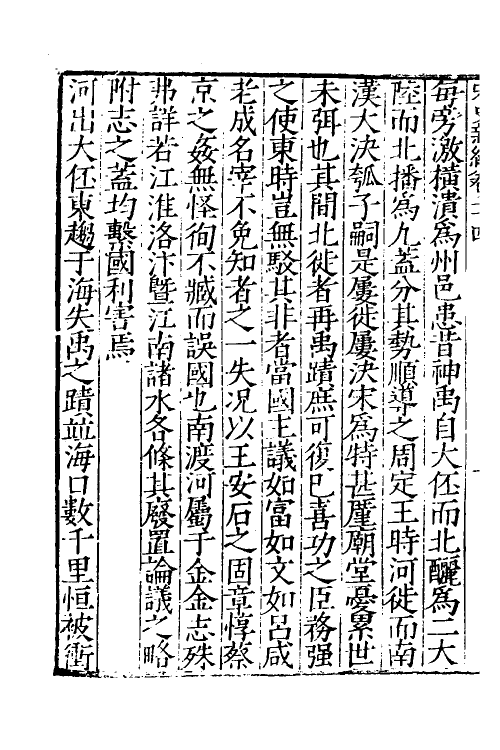 每旁激橫潰爲州邑患昔神禹自大伾而北釃爲二大
陸而北播爲九蓋分其勢順導之周定王時河徙而南
漢大決瓠子嗣是屢徙屢決宋爲特甚廑廟堂憂累世
未弭也其間北徙者再禹蹟庶可復已喜功之臣務强
之使東時豈無駁其非者當國主議如富如文如呂咸
老成名宰不免知者之一失况以王安石之固章惇蔡
京之姦無怪徇不臧而誤國也南渡河屬于金金志殊
弗詳若江淮洛汴曁江南諸水各條其廢置論議之略
附志之蓋均繫國利害焉
河出大伾東趨于海失禹之蹟並海口數千里恒被衝